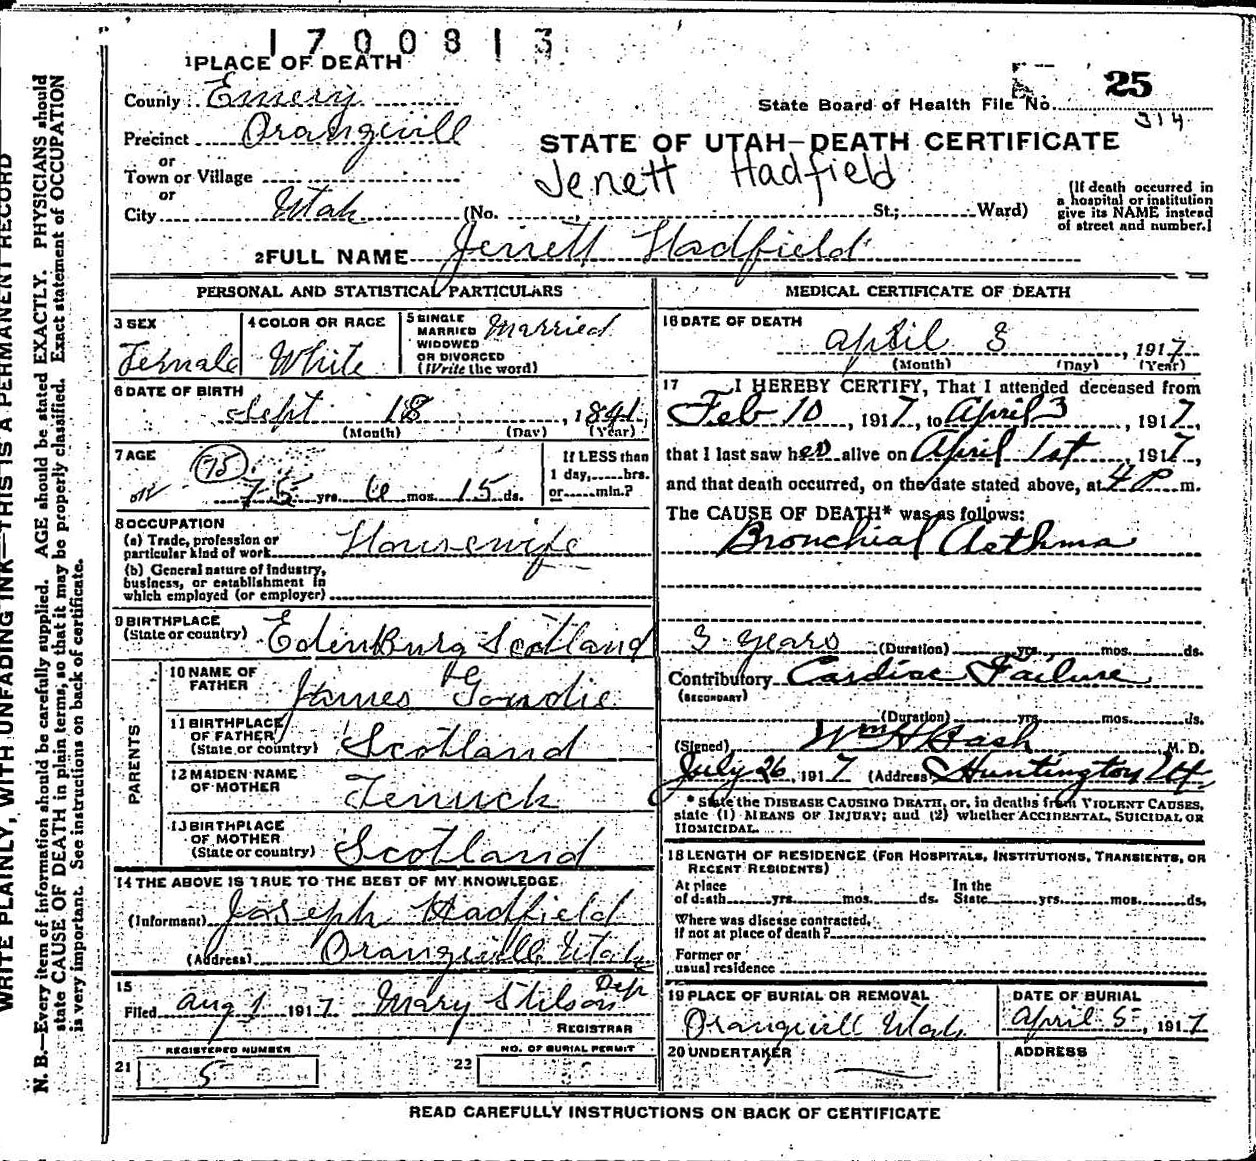 1700813
1 PLACE OF DEATH
County Emery
Precinct Orangevill
or
Town or Village
or
City Utah (No. St.; Ward)
25
State Board of Health File No.
314
STATE OF UTAH—DEATH CERTIFICATE
Jenett Hadfield
(If death occurred in
a hospital or institution
give its NAME instead
of street and number.]
2 FULL NAME Jenett Hadfield
PERSONAL AND STATISTICAL PARTICULARS
3 SEX
Female
4 COLOR OR RACE
White
5 SINGLE
MARRIED
WIDOWED
OR DIVORCED
(Write the word)
Married
6 DATE OF BIRTH
Sept 18, 1841
(Month) (Day) (Year)
7 AGE
75
75 yrs. 6 mos. 15 ds.
If LESS than
1 day,......hrs.
or......min.?
8 OCCUPATION
(a) Trade, profession or
particular kind of work Housewife
(b) General nature of industry,
business, or establishment in
which employed (or employer)
9 BIRTHPLACE
(State or country) EdinBurg Scotland
PARENTS
10 NAME OF
FATHER
James Gowdie
11 BIRTHPLACE
OF FATHER
(State or country) Scotland
12 MAIDEN NAME
OF MOTHER
13 BIRTHPLACE
OF MOTHER
(State or country) Scotland
14 THE ABOVE IS TRUE TO THE BEST OF MY KNOWLEDGE
(Informant) Joseph Hadfield
(Address) Orangeville Utah
15
Filed Aug 1 1917 Mary Stilson Dep
REGISTRAR
REGISTERED NUMBER
21 5
NO. OF BURIAL PERMIT
22
MEDICAL CERTIFICATE OF DEATH
16 DATE OF DEATH
April 3, 1917
(Month) (Day) (Year)
17 I HEREBY CERTIFY, That I attended deceased from
Feb 10, 1917, to April 3, 1917,
that I last saw her alive on April 1st, 1917,
and that death occurred, on the date stated above, at 4 P m.
The CAUSE OF DEATH* was as follows:
Bronchial Asthma
3 years (Duration) yrs. mos. ds.
Contributory Cardiac Failure
(SECONDARY)
(Duration) yrs. mos. ds.
(Signed) Wm H Gash M. D.
July 26, 1917 (Address) Huntington Ut
* State the DISEASE CAUSING DEATH, or, in deaths from VIOLENT CAUSES,
state (1) MEANS OF INJURY; and (2) whether ACCIDENTAL, SUICIDAL OR
HOMICIDAL.
18 LENGTH OF RESIDENCE (FOR HOSPITALS, INSTITUTIONS, TRANSIENTS, OR
RECENT RESIDENTS)
At place
of death yrs. mos. ds.
In the
State yrs. mos. ds.
Where was disease contracted,
if not at place of death?
Former or
usual residence
19 PLACE OF BURIAL OR REMOVAL
Orangevill Utah
DATE OF BURIAL
April 5, 1917
20 UNDERTAKER
ADDRESS
READ CAREFULLY INSTRUCTIONS ON BACK OF CERTIFICATE
WRITE PLAINLY, WITH UNFADING INK—THIS IS A PERMANENT RECORD
N. B.—Every item of information should be carefully supplied. AGE should be stated EXACTLY. PHYSICIANS should
state CAUSE OF DEATH in plain terms, so that it may be properly classified. Exact statement of OCCUPATION
is very important. See instructions on back of certificate.